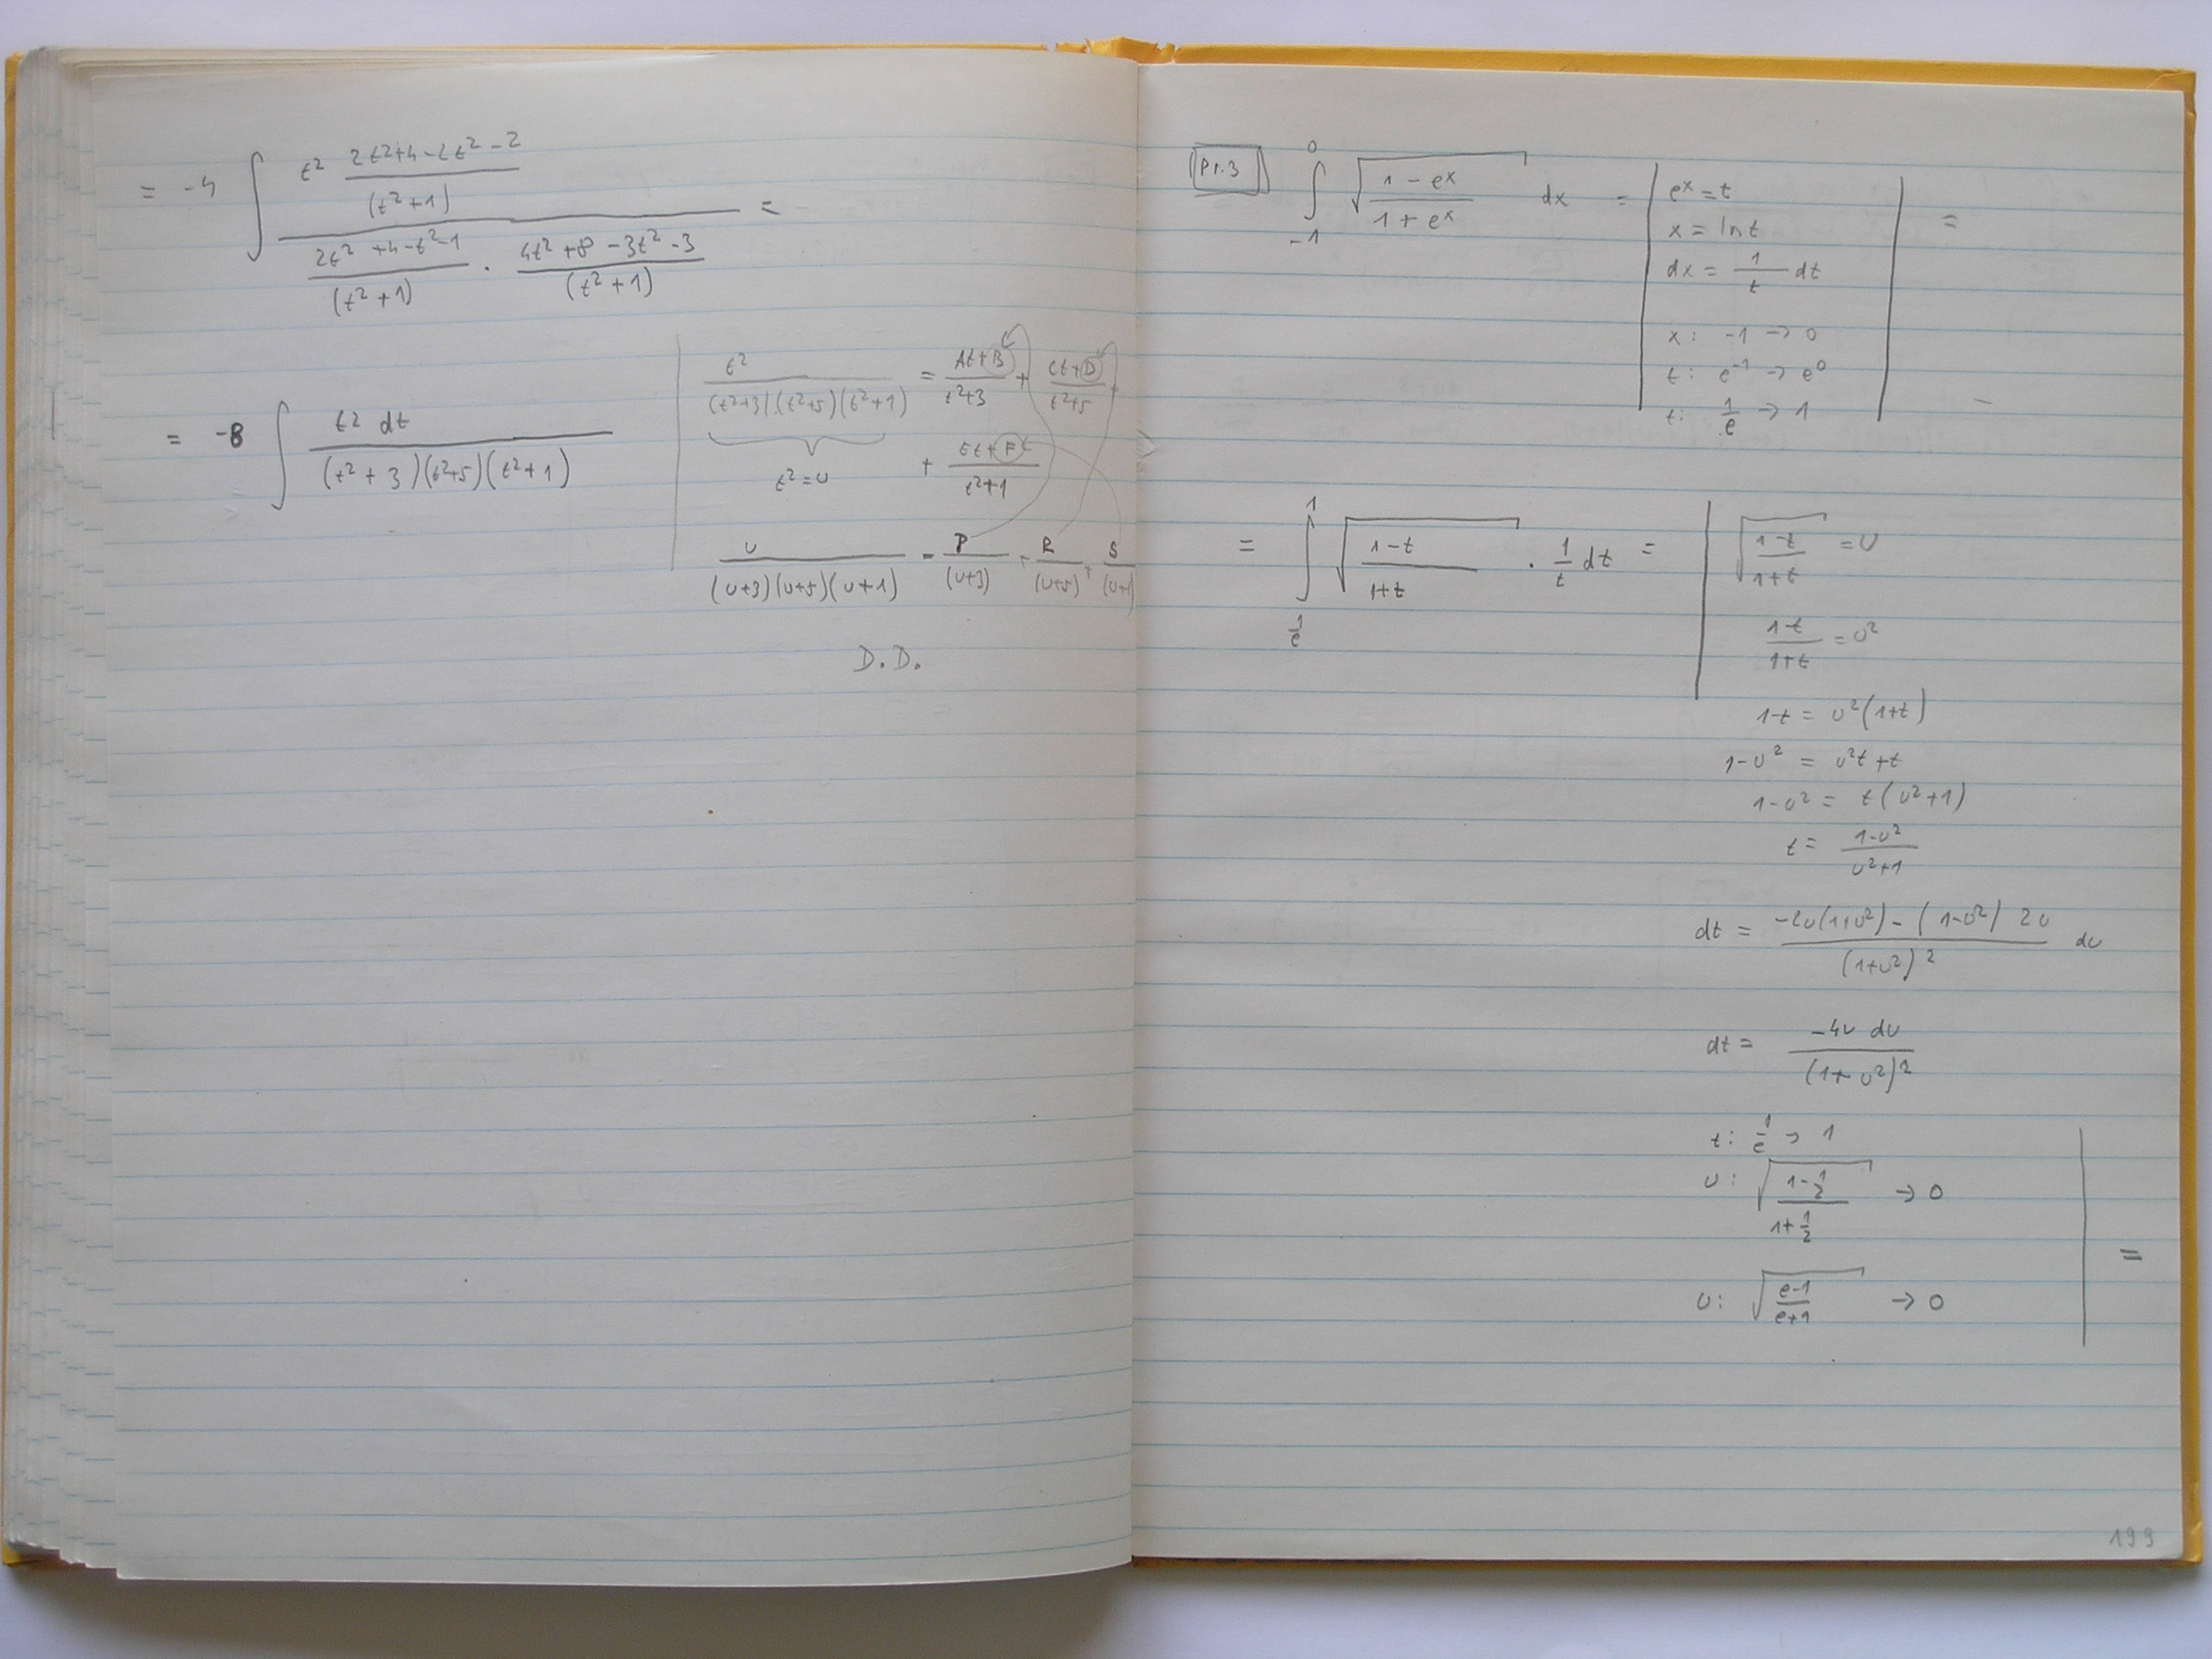 = -4 ∫ (t² (2t²+4-2t²-2)/(t²+1)) / ((2t²+4-t²-1)/(t²+1) · (4t²+8-3t²-3)/(t²+1)) =
= -8 ∫ t² dt / ((t²+3)(t²+5)(t²+1))
t² / ((t²+3)(t²+5)(t²+1)) = (At+B)/(t²+3) + (Ct+D)/(t²+5) +
t²=u + (Et+F)/(t²+1)
u / ((u+3)(u+5)(u+1)) = P/(u+3) + R/(u+5) + S/(u+1)
D.D.
Pr.3 ∫_{-1}^{0} √((1-eˣ)/(1+eˣ)) dx = | eˣ=t | =
x = ln t
dx = 1/t dt
x: -1 → 0
t: e⁻¹ → e⁰
t: 1/e → 1
= ∫_{1/e}^{1} √((1-t)/(1+t)) · 1/t dt = | √((1-t)/(1+t)) = u
(1-t)/(1+t) = u²
1-t = u²(1+t)
1-u² = u²t+t
1-u² = t(u²+1)
t = (1-u²)/(u²+1)
dt = (-2u(1+u²)-(1-u²)2u)/(1+u²)² du
dt = -4u du/(1+u²)²
t: 1/e → 1
u: √((1-1/2)/(1+1/2)) → 0
u: √((e-1)/(e+1)) → 0 | =
199